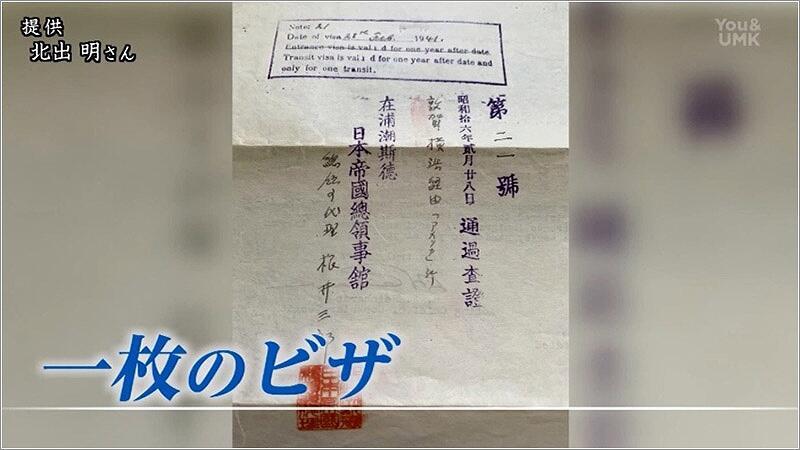 提供
北出 明さん
You&
UMK
Note: 21
Date of visa 28th Feb. 1941.
Entrance visa is valid for one year after date
Transit visa is valid for one year after date and
only for one transit.
第二一號
昭和拾六年貳月廿八日 通過査證
敦賀横浜経由「アメリカ」行
在浦潮斯德
日本帝國總領事館
総領事代理 根井三郎
一枚のビザ